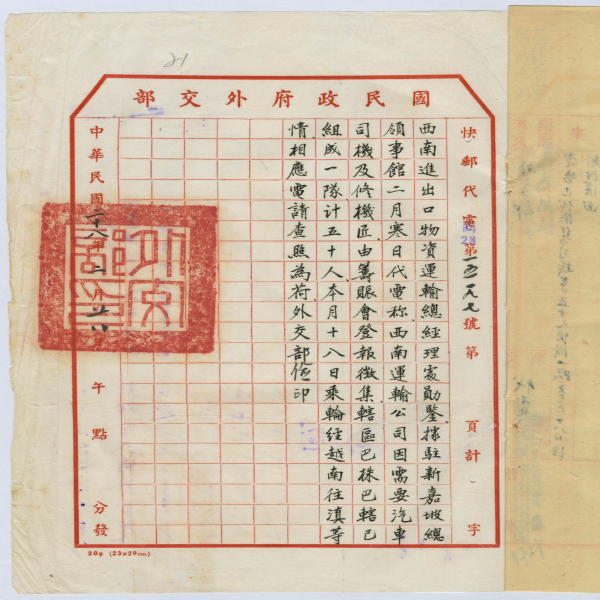 21
國民政府外交部
快郵代電 第一五一九七號第 頁計 字
西南進出口物資運輸總經理處勛鑒據駐新嘉坡總
領事館二月寒日代電称西南運輸公司因需要汽車
司機及修機匠由籌賑會登報徵集轄區巴株巴轄已
組成一隊計五十人本月十八日乘輪經越南往滇等
情相應電請查照為荷外交部 印
中華民國二十八年二月 日 午 點 分發
209 (23×29cm)